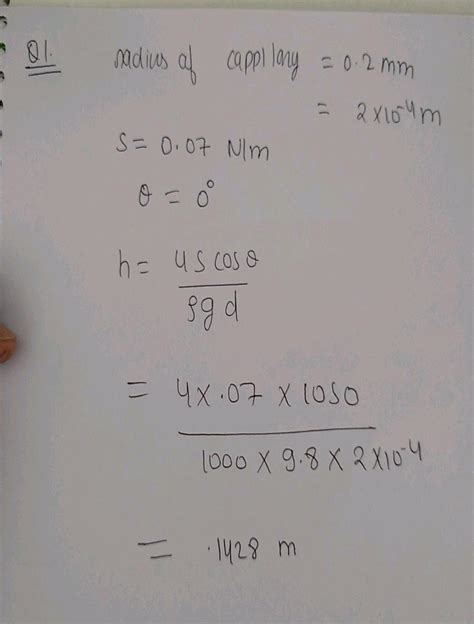 Q1. radius of cappilary = 0.2 mm
= 2×10⁻⁴ m
S = 0.07 N/m
θ = 0°
h = 4 S cos θ
ρ g d
= 4 × .07 × cos 0
1000 × 9.8 × 2×10⁻⁴
= .1428 m